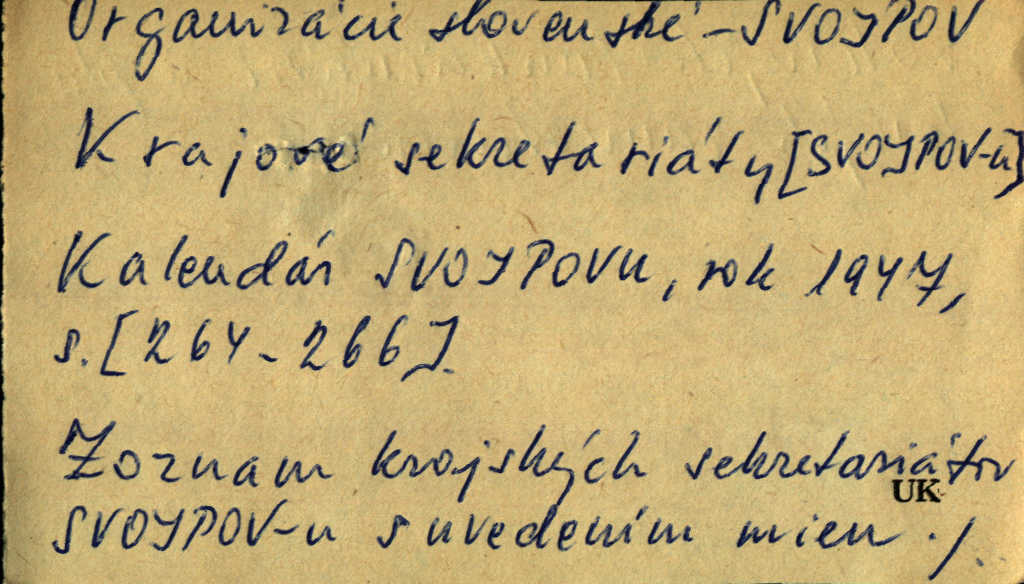 Organizácie slovenské - SVOJPOV
Krajové sekretariáty [SVOJPOV-u]
Kalendár SVOJPOVu, rok 1947,
s. [264-266].
Zoznam krajských sekretariátov
UK
SVOJPOV-u s uvedením mien ./.